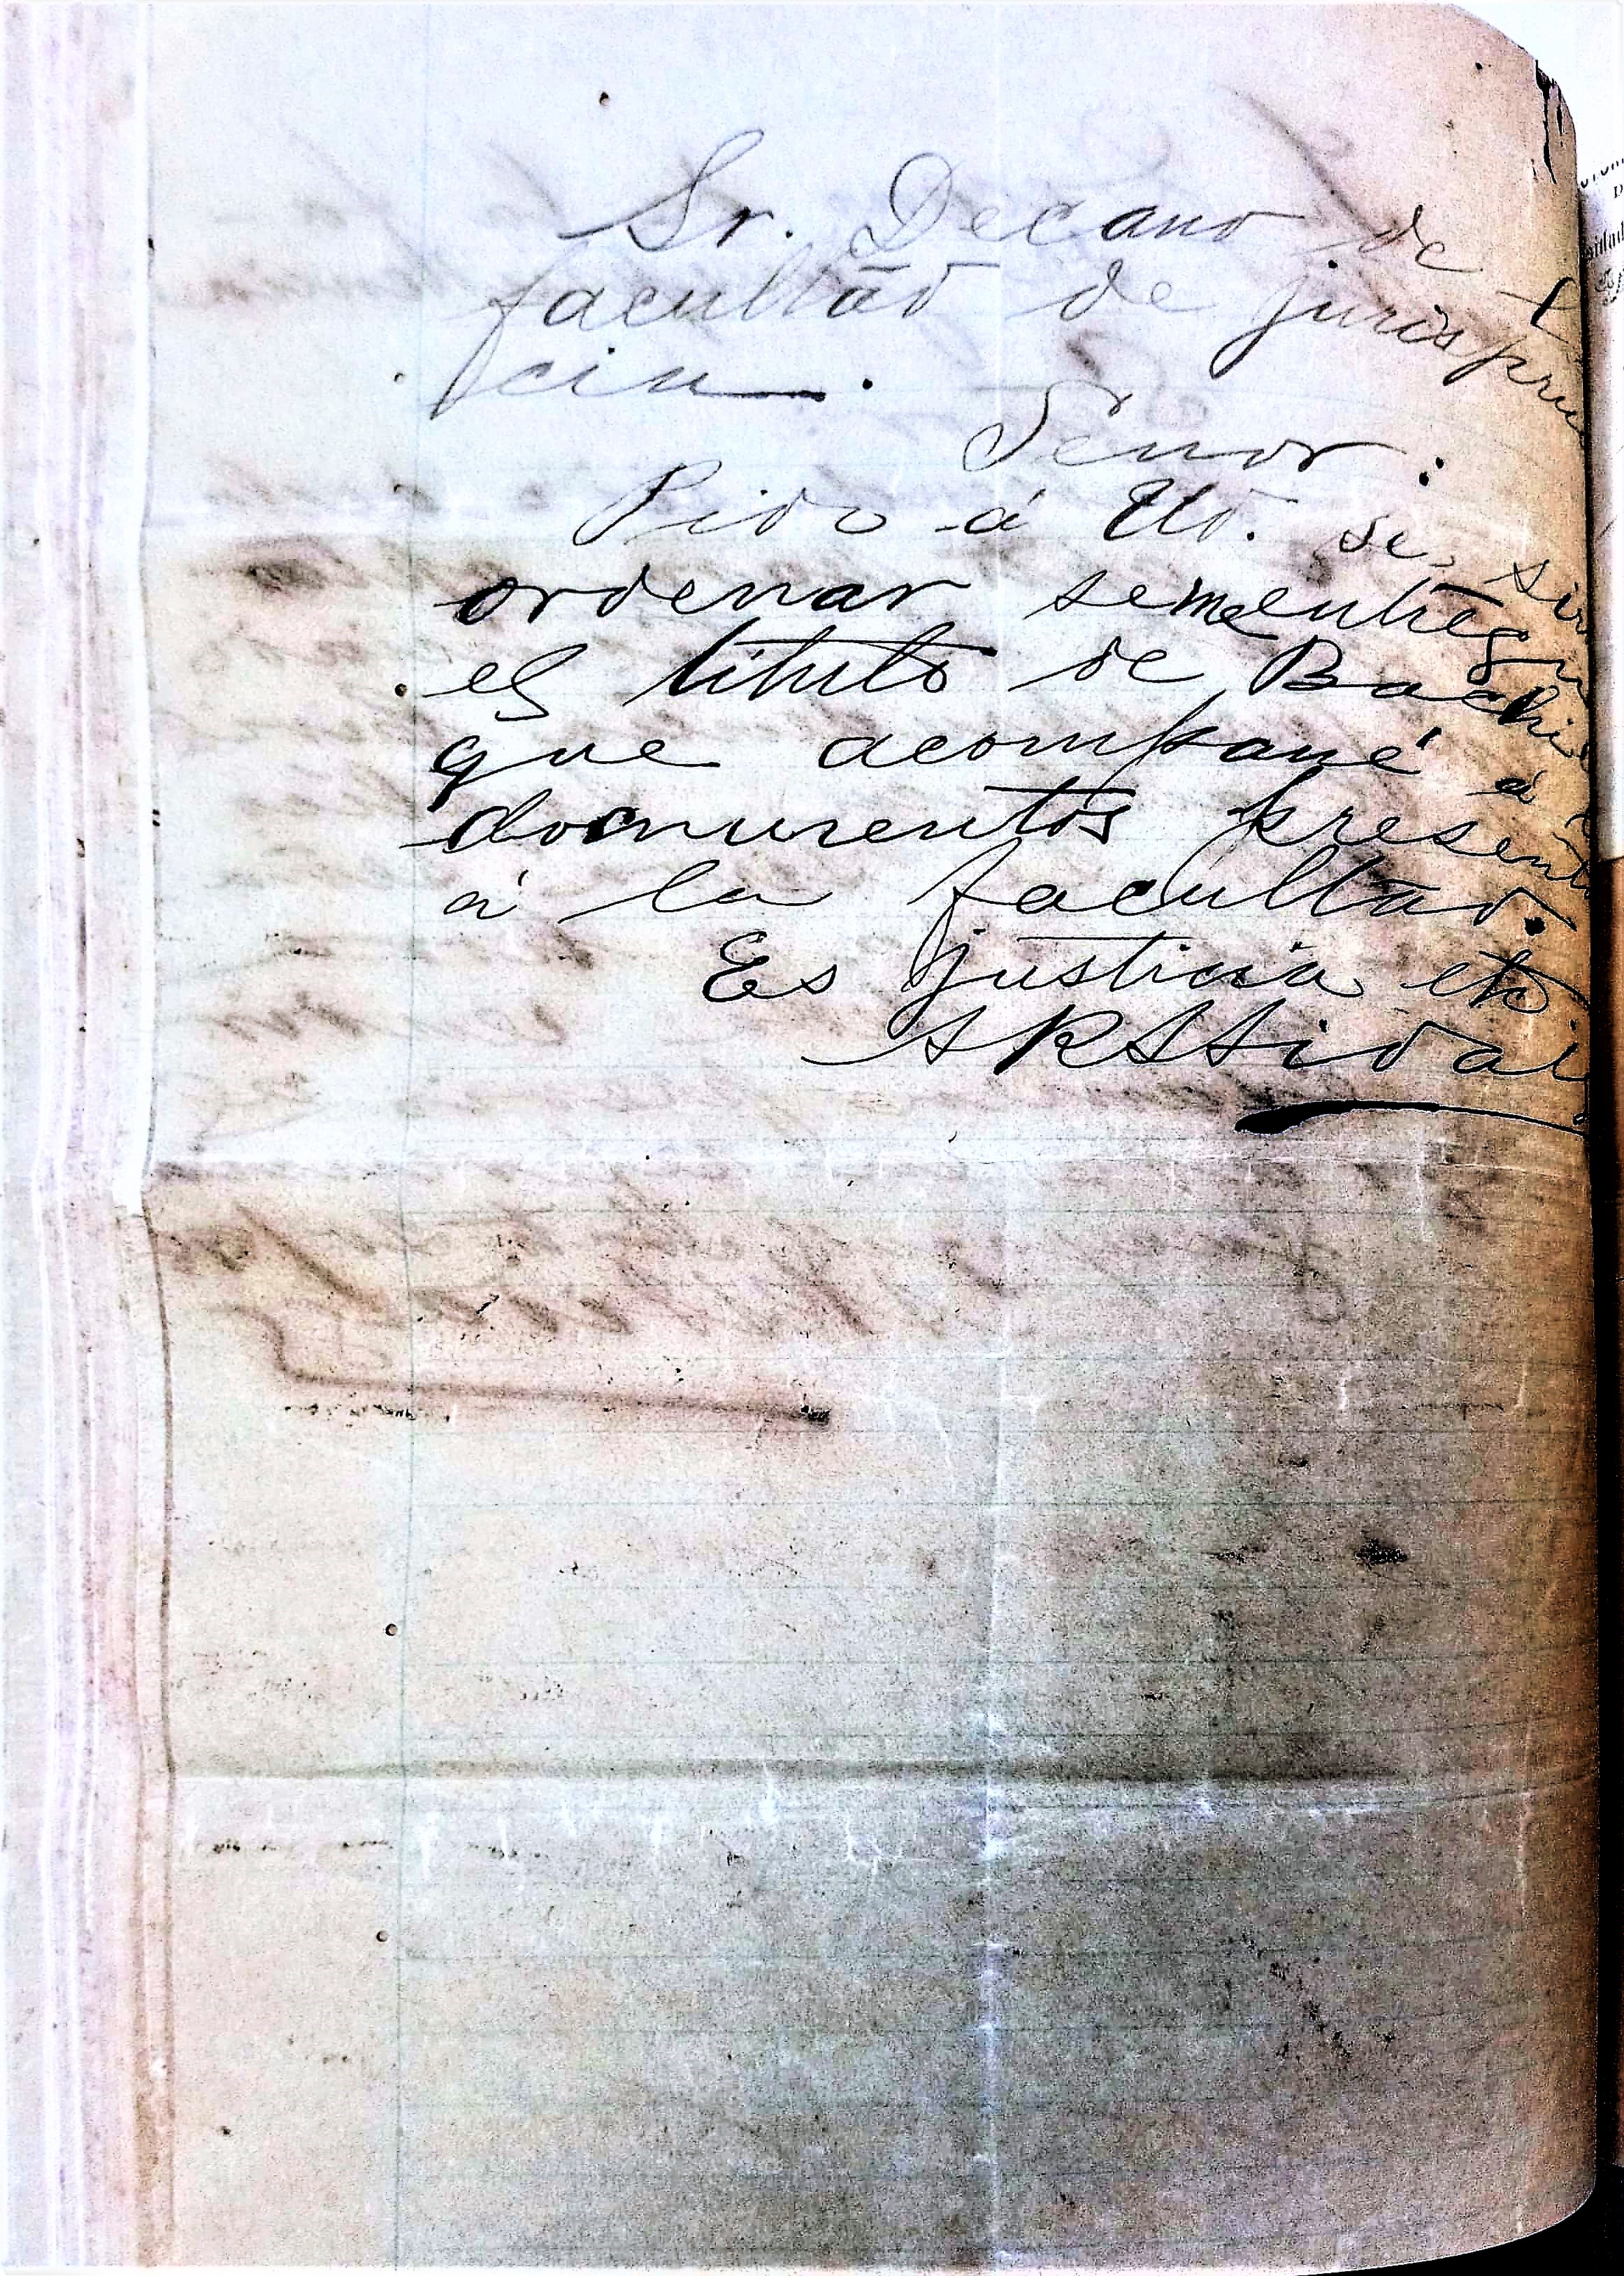 Sr. Decano de l
facultad de jurispru
cia.
Señor:
Pido á Ud. se sir
ordenar se me entregu
el titulo de Bachi
que acompañé á
documentos presenta
á la facultad.
Es justicia etc.